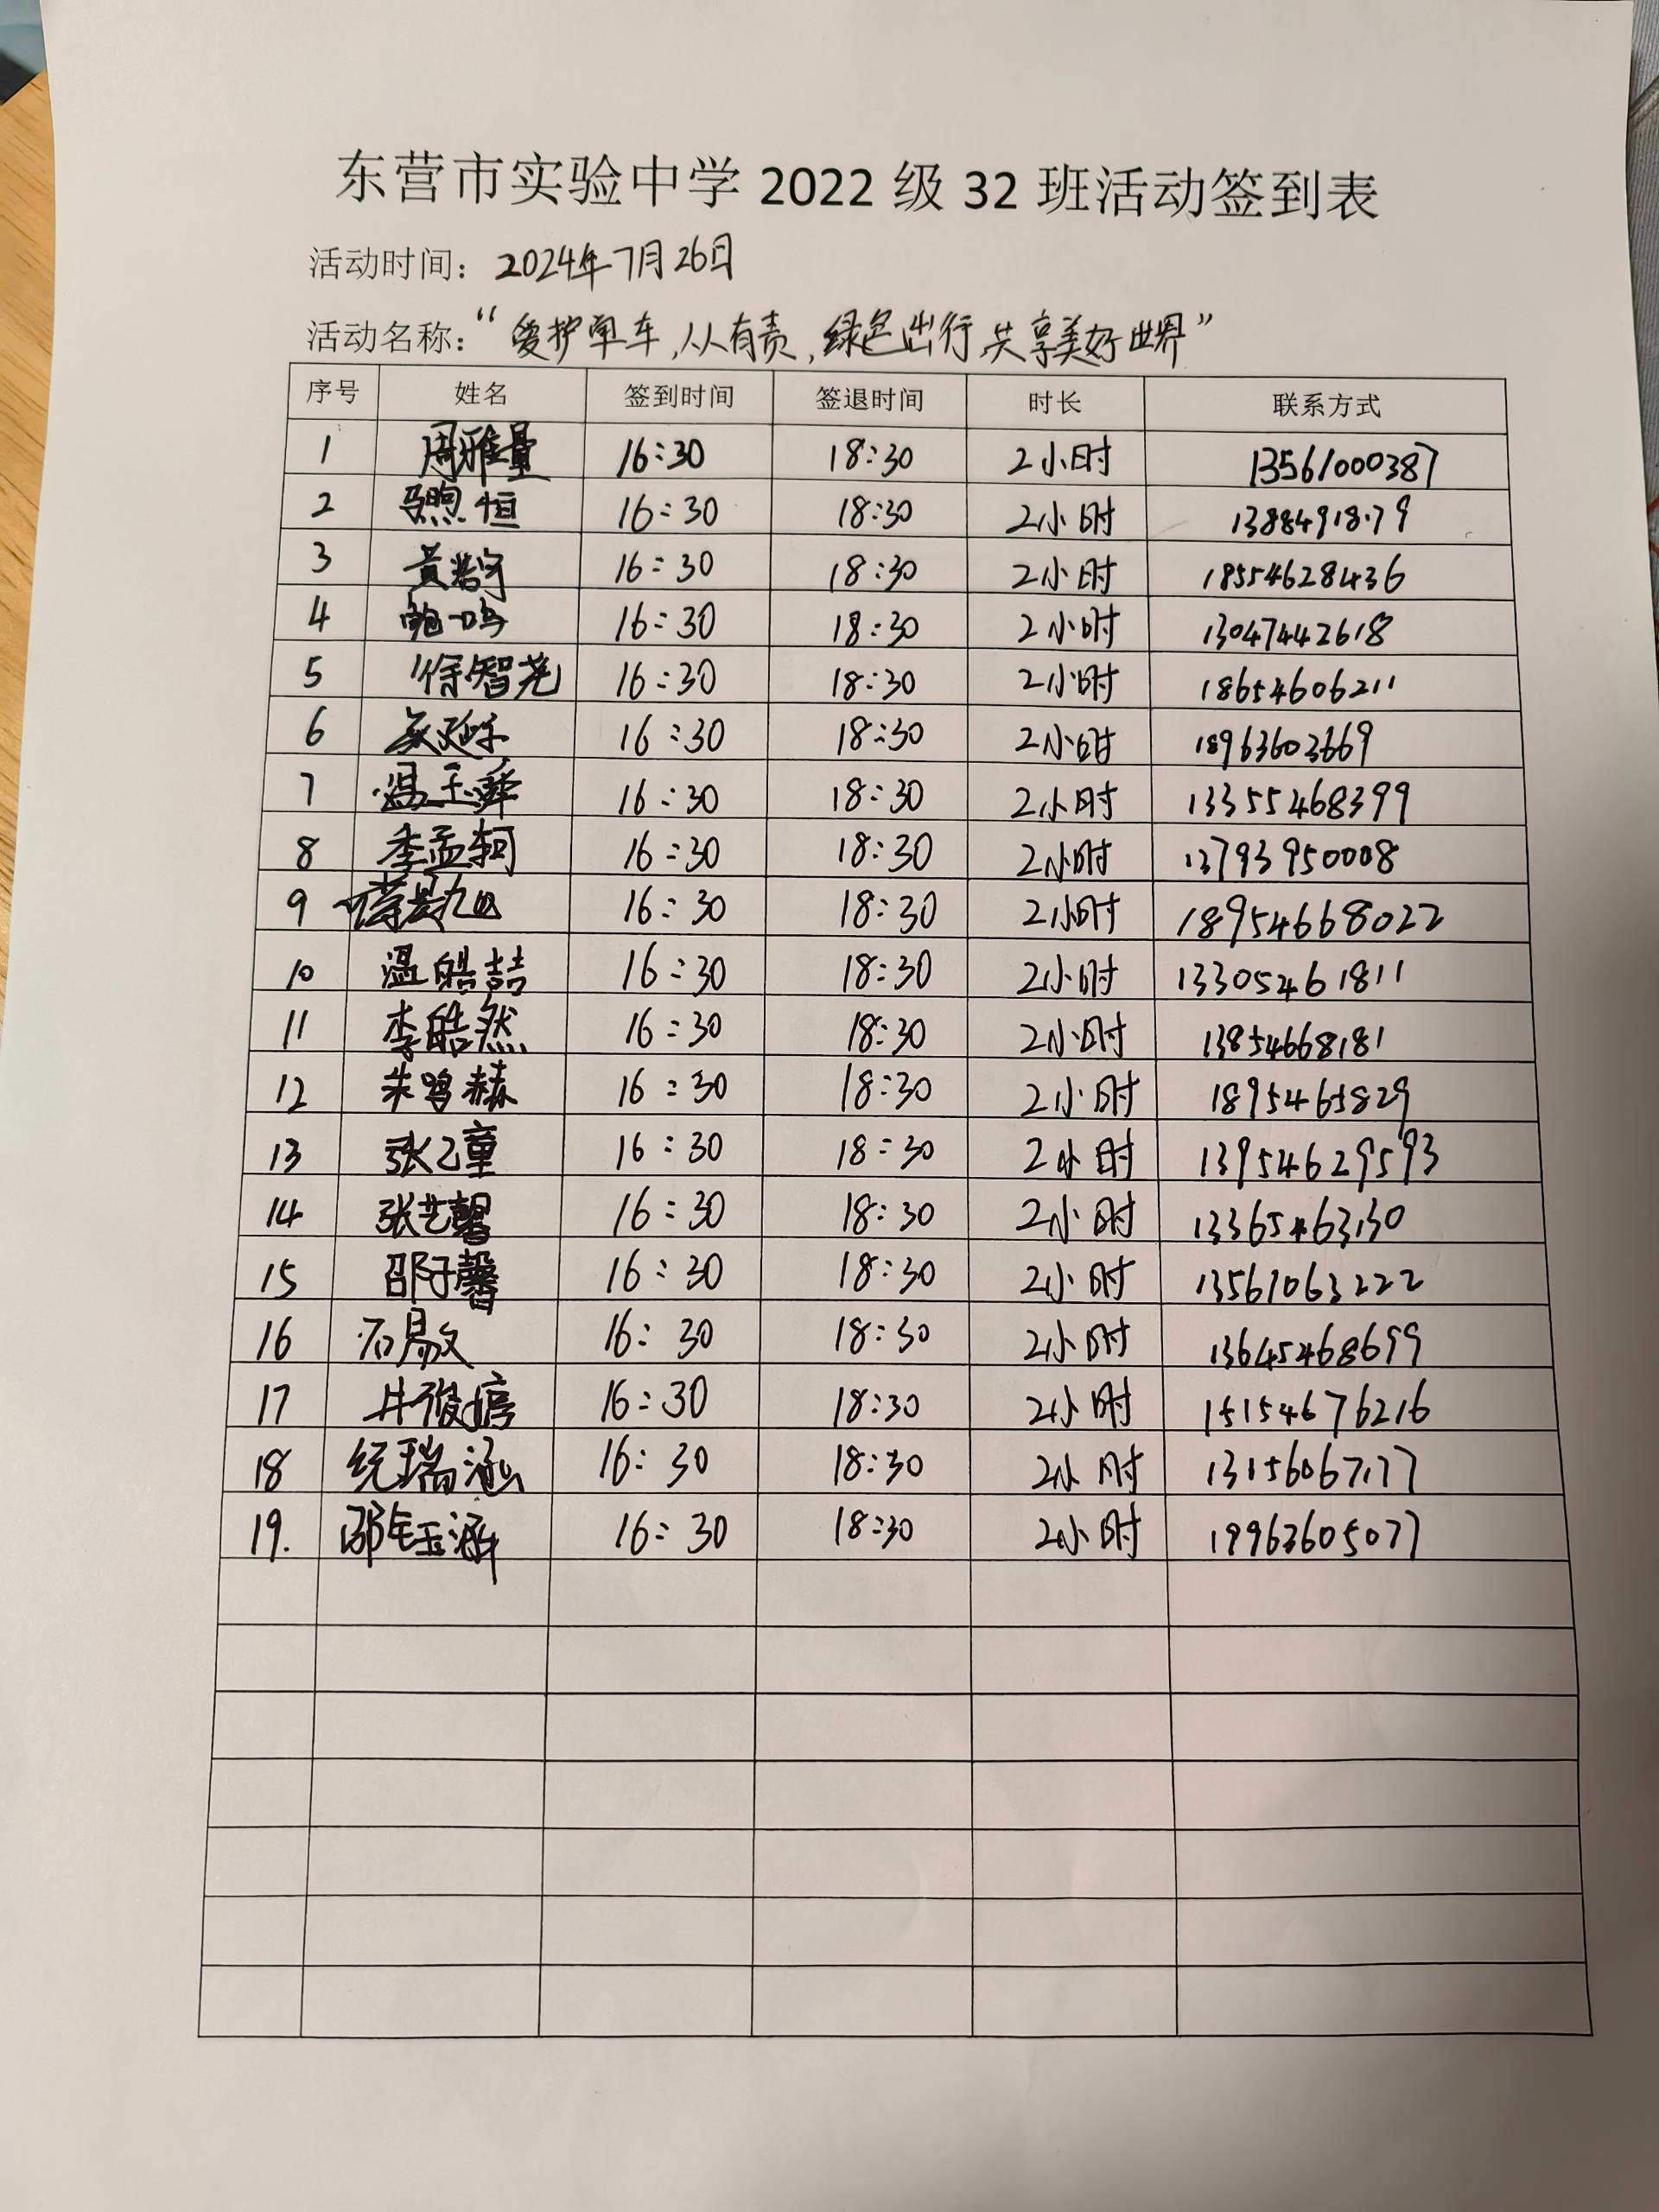 东营市实验中学 2022 级 32 班活动签到表
活动时间：2024年7月26日
活动名称：“爱护单车,人人有责,绿色出行,共享美好世界”
序号 姓名 签到时间 签退时间 时长 联系方式
1 周雅量 16:30 18:30 2小时 13561000387
2 16:30 18:30 2小时
3 黄浩宇 16:30 18:30 2小时 18554628436
4 鲍一鸣 16:30 18:30 2小时 13047442618
5 徐智尧 16:30 18:30 2小时 18654606211
6 16:30 18:30 2小时 18963603669
7 16:30 18:30 2小时 13355468399
8 李孟轲 16:30 18:30 2小时 13793950008
9 16:30 18:30 2小时 18954668022
10 温皓喆 16:30 18:30 2小时 13305461811
11 李皓然 16:30 18:30 2小时 13854668181
12 朱鸣赫 16:30 18:30 2小时 1895465829
13 张乙童 16:30 18:30 2小时 13954629593
14 张艺馨 16:30 18:30 2小时 13365463130
15 邵子馨 16:30 18:30 2小时 13561063222
16 石易文 16:30 18:30 2小时 13645468699
17 16:30 18:30 2小时 15154676216
18 统瑞涵 16:30 18:30 2小时 13156067177
19. 16:30 18:30 2小时 19963605077